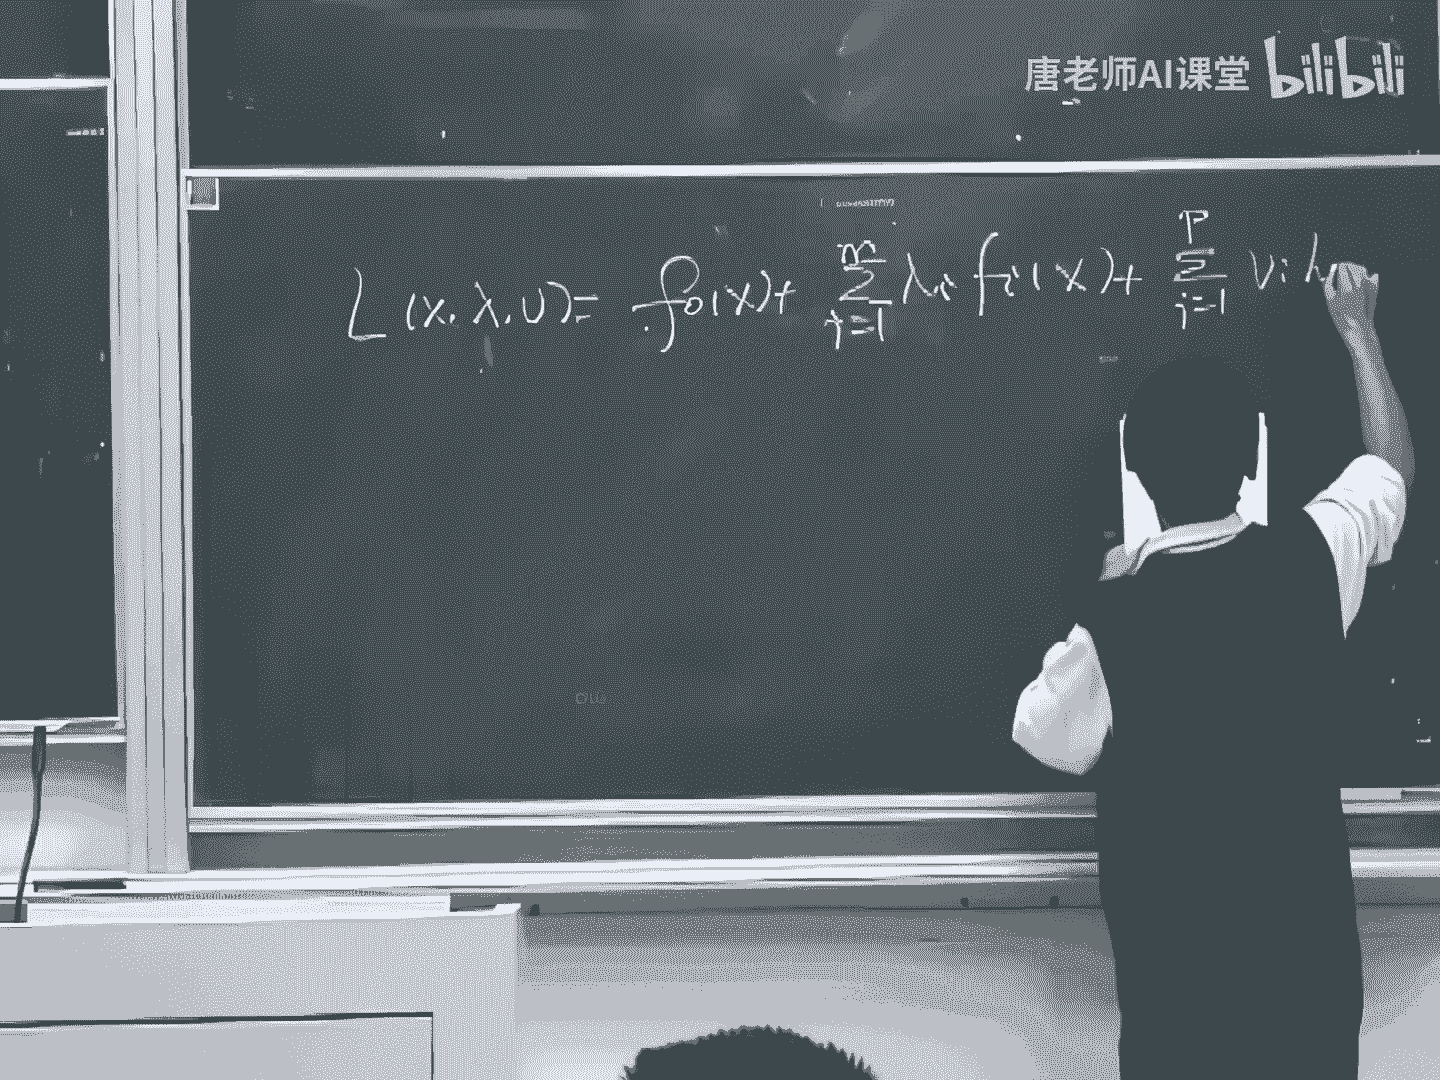 唐老师AI课堂 bilibili
L(x,λ,υ)= f₀(x)+ ∑ᵢ₌₁ᵐ λᵢ fᵢ(x)+ ∑ᵢ₌₁ᵖ νᵢ h